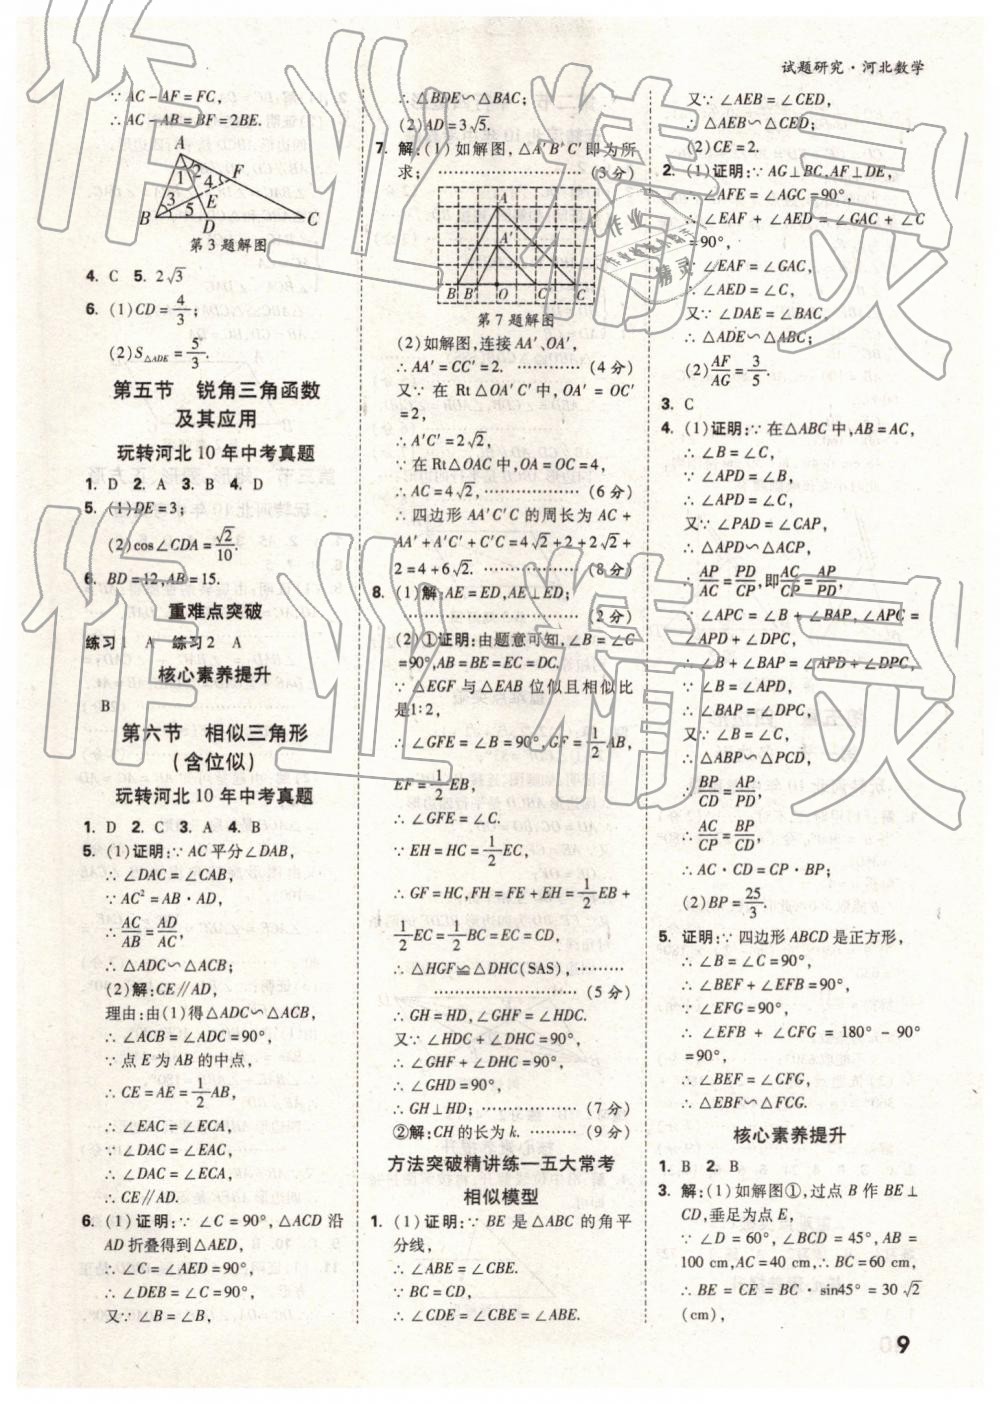 试题研究·河北数学
∵AC-AF=FC,
∴AC-AB=BF=2BE.
A
1 2 4 F
3 E
B 5 D C
第3题解图
4. C 5. 2√3
6. (1)CD=4/3;
(2)S△ADE=5/3.
第五节 锐角三角函数
及其应用
玩转河北10年中考真题
1. D 2. A 3. B 4. D
5. (1)DE=3;
(2)cos∠CDA=√2/10.
6. BD=12,AB=15.
重难点突破
练习1 A 练习2 A
核心素养提升
B
第六节 相似三角形
(含位似)
玩转河北10年中考真题
1. D 2. C 3. A 4. B
5. (1)证明:∵AC平分∠DAB,
∴∠DAC=∠CAB,
∵AC²=AB·AD,
∴AC/AB=AD/AC,
∴△ADC∽△ACB;
(2)解:CE∥AD,
理由:由(1)得△ADC∽△ACB,
∴∠ACB=∠ADC=90°,
∵点E为AB的中点,
∴CE=AE=1/2AB,
∴∠EAC=∠ECA,
∵∠DAC=∠EAC,
∴∠DAC=∠ECA,
∴CE∥AD.
6. (1)证明:∵∠C=90°,△ACD沿
AD折叠得到△AED,
∴∠C=∠AED=90°,
∴∠DEB=∠C=90°,
又∵∠B=∠B,
∴△BDE∽△BAC;
(2)AD=3√5.
7. 解:(1)如解图,△A′B′C′即为所
求; (3分)
A
A′
B B′ O C′ C
第7题解图
(2)如解图,连接AA′、OA′,
∴AA′=CC′=2. (4分)
又∵在Rt△OA′C′中,OA′=OC′
=2,
∴A′C′=2√2,
∵在Rt△OAC中,OA=OC=4,
∴AC=4√2, (6分)
∴四边形AA′C′C的周长为AC+
AA′+A′C′+C′C=4√2+2+2√2+
2=4+6√2. (8分)
8. (1)解:AE=ED,AE⊥ED;
(2分)
(2)①证明:由题意可知,∠B=∠C
=90°,AB=BE=EC=DC.
∵△EGF与△EAB位似且相似比
是1:2,
∴∠GFE=∠B=90°,GF=1/2AB,
EF=1/2EB,
∴∠GFE=∠C.
∵EH=HC=1/2EC,
∴GF=HC,FH=FE+EH=1/2EB+
1/2EC=1/2BC=EC=CD,
∴△HGF≌△DHC(SAS),
(5分)
∴GH=HD,∠GHF=∠HDC.
又∵∠HDC+∠DHC=90°,
∴∠GHF+∠DHC=90°,
∴∠GHD=90°,
∴GH⊥HD; (7分)
②解:CH的长为k. (9分)
方法突破精讲练—五大常考
相似模型
1. (1)证明:∵BE是△ABC的角平
分线,
∴∠CBE=∠ABE,
∵BC=CD,
∴∠CDE=∠CBE=∠ABE,
又∵∠AEB=∠CED,
∴△AEB∽△CED;
(2)CE=2.
2. (1)证明:∵AG⊥BC,AF⊥DE,
∴∠AFE=∠AGC=90°,
∴∠EAF+∠AED=∠GAC+∠C
=90°,
∵∠EAF=∠GAC,
∴∠AED=∠C,
又∵∠DAE=∠BAC,
∴△ADE∽△ABC;
(2)AF/AG=3/5.
3. C
4. (1)证明:∵在△ABC中,AB=AC,
∴∠B=∠C,
∵∠APD=∠B,
∴∠APD=∠C,
又∵∠PAD=∠CAP,
∴△APD∽△ACP,
∴AP/AC=PD/CP,即AC/CP=AP/PD,
∵∠APC=∠B+∠BAP,∠APC=
∠APD+∠DPC,
∴∠B+∠BAP=∠APD+∠DPC,
∵∠B=∠APD,
∴∠BAP=∠DPC,
又∵∠B=∠C,
∴△ABP∽△PCD,
∴BP/CD=AP/PD,
∴AC/CP=BP/CD,
∴AC·CD=CP·BP;
(2)BP=25/3.
5. 证明:∵四边形ABCD是正方形,
∴∠B=∠C=90°,
∴∠BEF+∠EFB=90°,
∵∠EFG=90°,
∴∠EFB+∠CFG=180°-90°
=90°,
∴∠BEF=∠CFG,
∴△EBF∽△FCG.
核心素养提升
1. B 2. B
3. 解:(1)如解图①,过点B作BE⊥
CD,垂足为点E,
∵∠D=60°,∠BCD=45°,AB=
100 cm,AC=40 cm,∴BC=60 cm,
∴BE=CE=BC·sin45°=30√2
(cm),
9
作业精灵
作业精灵